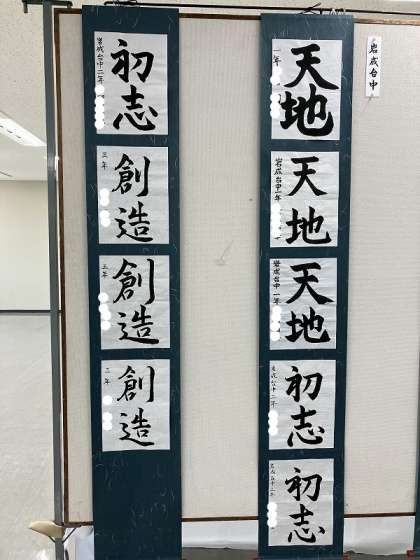 岩成台中
天地
一年
天地
岩成台中一年
天地
岩成台中一年
初志
岩成台中二年
初志
岩成台中二年
初志
岩成台中二年
創造
三年
創造
三年
創造
三年